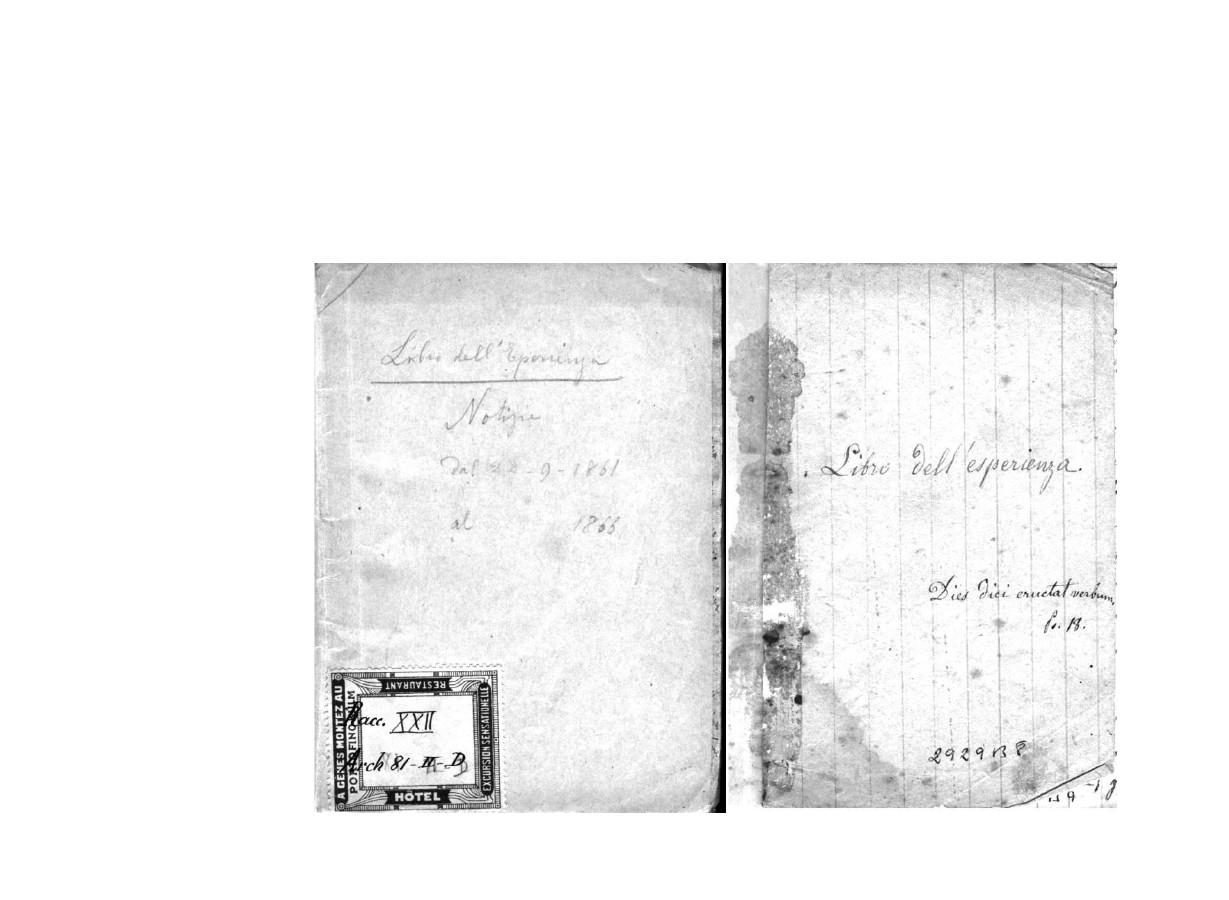 Libro dell'Eperienza
Notizie
dal 22-9-1861
al 1866
RESTAURANT
A GENES MONTEZ AU
PORTOFINO KULM
EXCURSION SENSATIONELLE
Racc. XXII
Arch 81-II-D
HÔTEL
Libro dell'esperienza.
Dies diei eructat verbum,
Ps. 18.
2929 B P